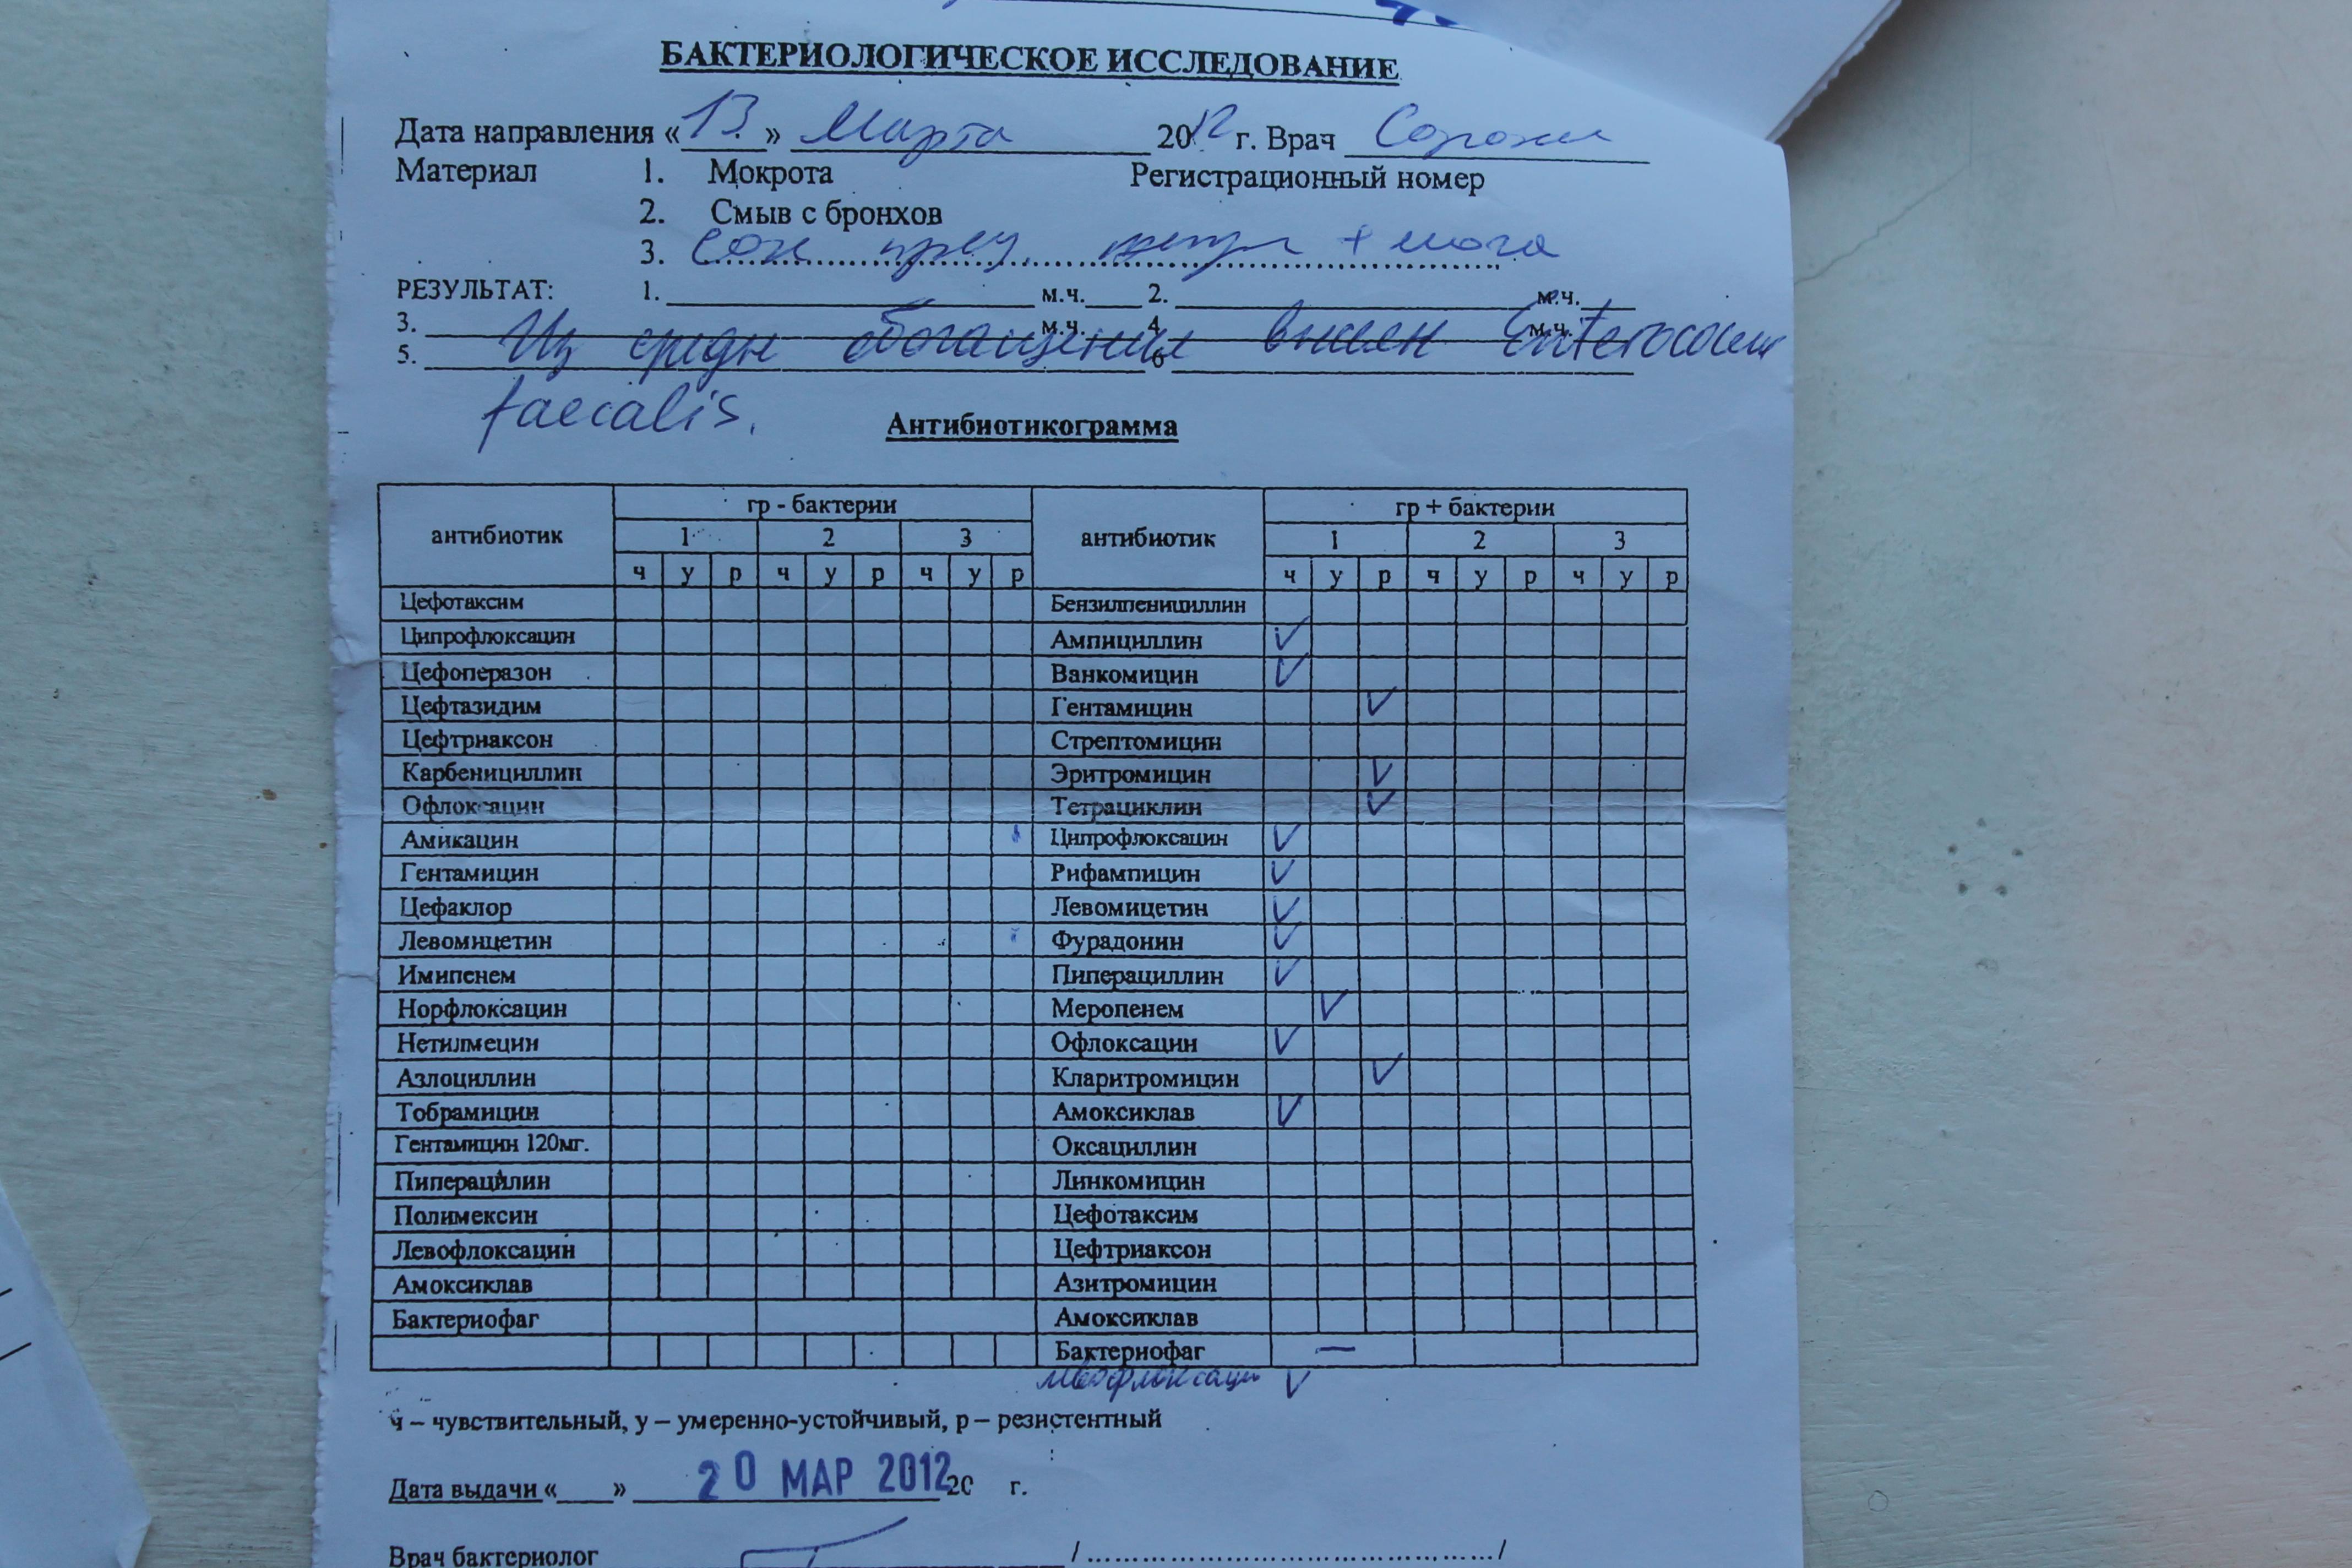 БАКТЕРИОЛОГИЧЕСКОЕ ИССЛЕДОВАНИЕ
Дата направления «13» Марта 2012 г. Врач
Материал 1. Мокрота Регистрационный номер
2. Смыв с бронхов
3. Сок + моча
РЕЗУЛЬТАТ: 1. м.ч. 2. м.ч.
3. м.ч. 4. м.ч.
5. 6
Из среды обогащения высеян Enterococcus
faecalis.
Антибиотикограмма
антибиотик гр - бактерии антибиотик гр + бактерии
1 2 3 1 2 3
ч у р ч у р ч у р ч у р ч у р ч у р
Цефотаксим Бензилпенициллин
Ципрофлоксацин Ампициллин ✓
Цефоперазон Ванкомицин ✓
Цефтазидим Гентамицин ✓
Цефтриаксон Стрептомицин
Карбенициллин Эритромицин ✓
Офлоксацин Тетрациклин ✓
Амикацин Ципрофлоксацин ✓
Гентамицин Рифампицин ✓
Цефаклор Левомицетин ✓
Левомицетин Фурадонин ✓
Имипенем Пиперациллин ✓
Норфлоксацин Меропенем ✓
Нетилмецин Офлоксацин ✓
Азлоциллин Кларитромицин ✓
Тобрамицин Амоксиклав ✓
Гентамицин 120мг. Оксациллин
Пиперацилин Линкомицин
Полимексин Цефотаксим
Левофлоксацин Цефтриаксон
Амоксиклав Азитромицин
Бактериофаг Амоксиклав
Бактериофаг —
левофлоксацин ✓
ч – чувствительный, у – умеренно-устойчивый, р – резистентный
Дата выдачи «____» 20 МАР 2012 20 г.
Врач бактериолог / /